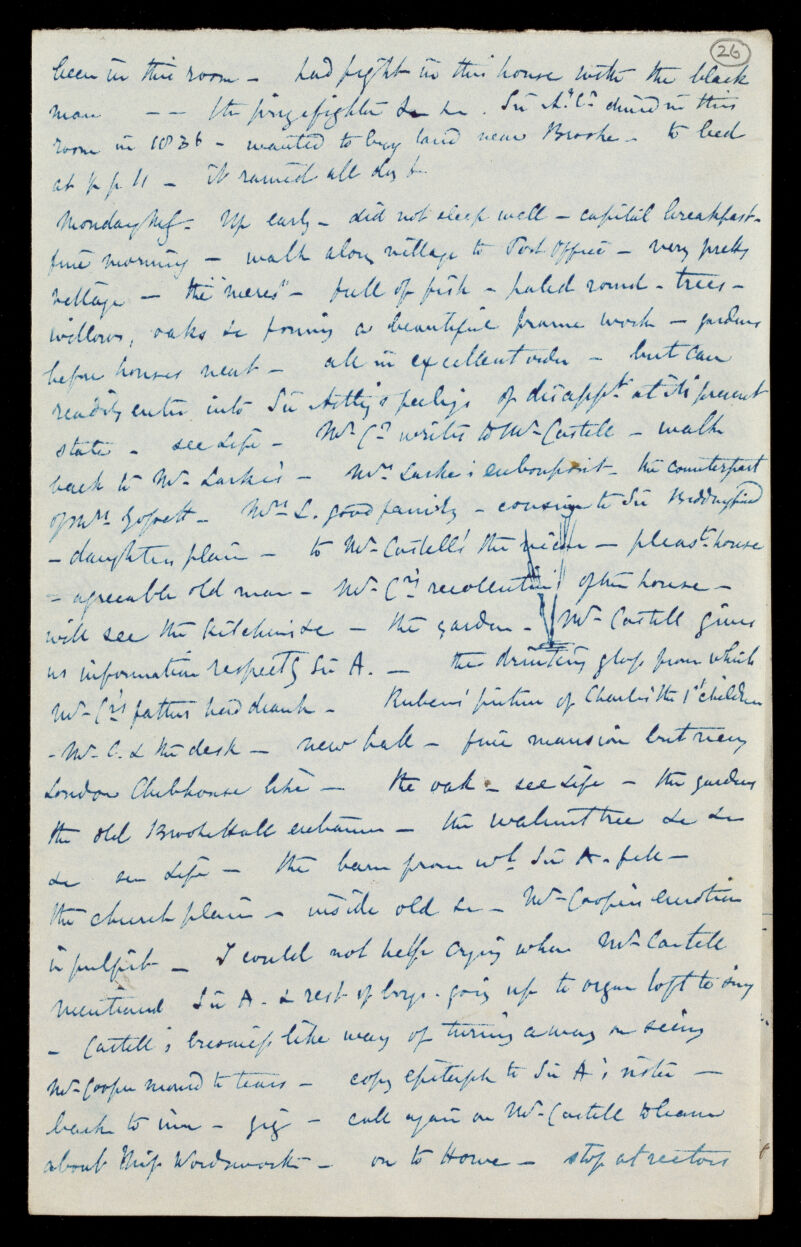 26
been in this room - had fight in this house with the black
man - - the prizefighter &c &c. Sir A.y C.r dined in this
room in 1836 - wanted to buy land near Brooke - to bed
at p p 11 - it rained all day &c
Monday Mg - Up early - did not sleep well - capital breakfast -
fine morning - walk along village to Post Office - very pretty
village - the "meres" - full of fish - paled round - trees -
willows, oaks &c forming a beautiful frame work - gardens
before houses neat - all in excellent order - but can
readily enter into Sir Astley's feelings of disappt. at its present
state - see Life - Mr. C.r writes to Mr. Castell - walk
back to Mr. Larke's - Mrs. Larke's embonpoint - the counterpart
of Mrs. - Mrs. L. good family - cousin to Sir Beddingfield
- daughters plain - to Mr. Castell's the - pleast. house
- agreeable old man - Mr. C.r's recollections of the house -
will see the kitchen &c - the garden - Mr. Castell gives
us information respectg Sir A. - the drinking glass from which
Mr. C.r's father had drank - Rubens' picture of Charles the 1st children
- Mr. C. & the desk - new hall - fine mansion but very
London Clubhouse like - the oak - see Life - the gardens
the old Brooke Hall - the walnut tree &c &c
&c see Life - the barn from wh. Sir A. fell -
the church plain - inside old &c - Mr. Cooper's emotion
in pulpit - I could not help crying when Mr. Castell
mentioned Sir A. & rest of boys going up to organ loft to sing
- Castell's like way of turning away on seeing
Mr. Cooper moved to tears - copy epitaph to Sir A's sister -
back to inn - gig - call again on Mr. Castell to learn
about Miss Wordsworth - on to Howe - stop at rectors